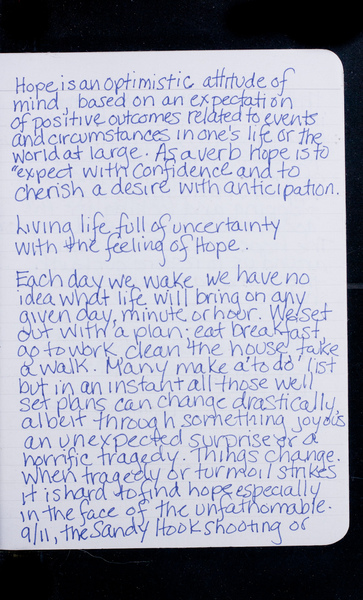 Hope is an optimistic attitude of
mind, based on an expectation
of positive outcomes related to events
and circumstances in one's life or the
world at large. As a verb hope is to
"expect with confidence and to
cherish a desire with anticipation.
Living life full of uncertainty
with the feeling of Hope.
Each day we wake we have no
idea what life will bring on any
given day, minute or hour. We set
out with a plan; eat breakfast,
go to work, clean the house, take
a walk. Many make a 'to do' list
but in an instant all those well
set plans can change drastically
albeit through something joyous
an unexpected surprise or a
horrific tragedy. Things change.
When tragedy or turmoil strikes
it is hard to find hope especially
in the face of the unfathomable.
9/11, the Sandy Hook shooting or